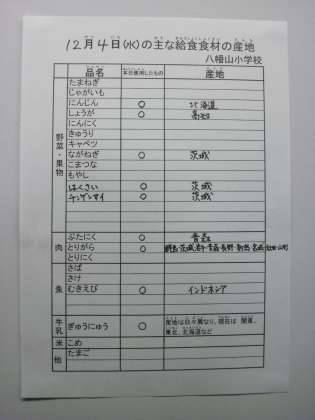 12月4日(水)の主な給食食材の産地
八幡山小学校
品名 本日使用したもの 産地
野菜・果物
たまねぎ
じゃがいも
にんじん ○ 北海道
しょうが ○ 高知
にんにく
きゅうり
キャベツ
ながねぎ ○ 茨城
こまつな
もやし
はくさい ○ 茨城
チンゲンサイ ○ 茨城
肉
ぶたにく ○ 青森
とりがら ○ 群馬 茨城 岩手 青森 長野 新潟 宮城 秋田 山形
とりにく
魚
さば
さけ
むきえび ○ インドネシア
牛乳 ぎゅうにゅう ○ 産地は日々異なり、現在は 関東、
東北、北海道など
米 こめ
他 たまご